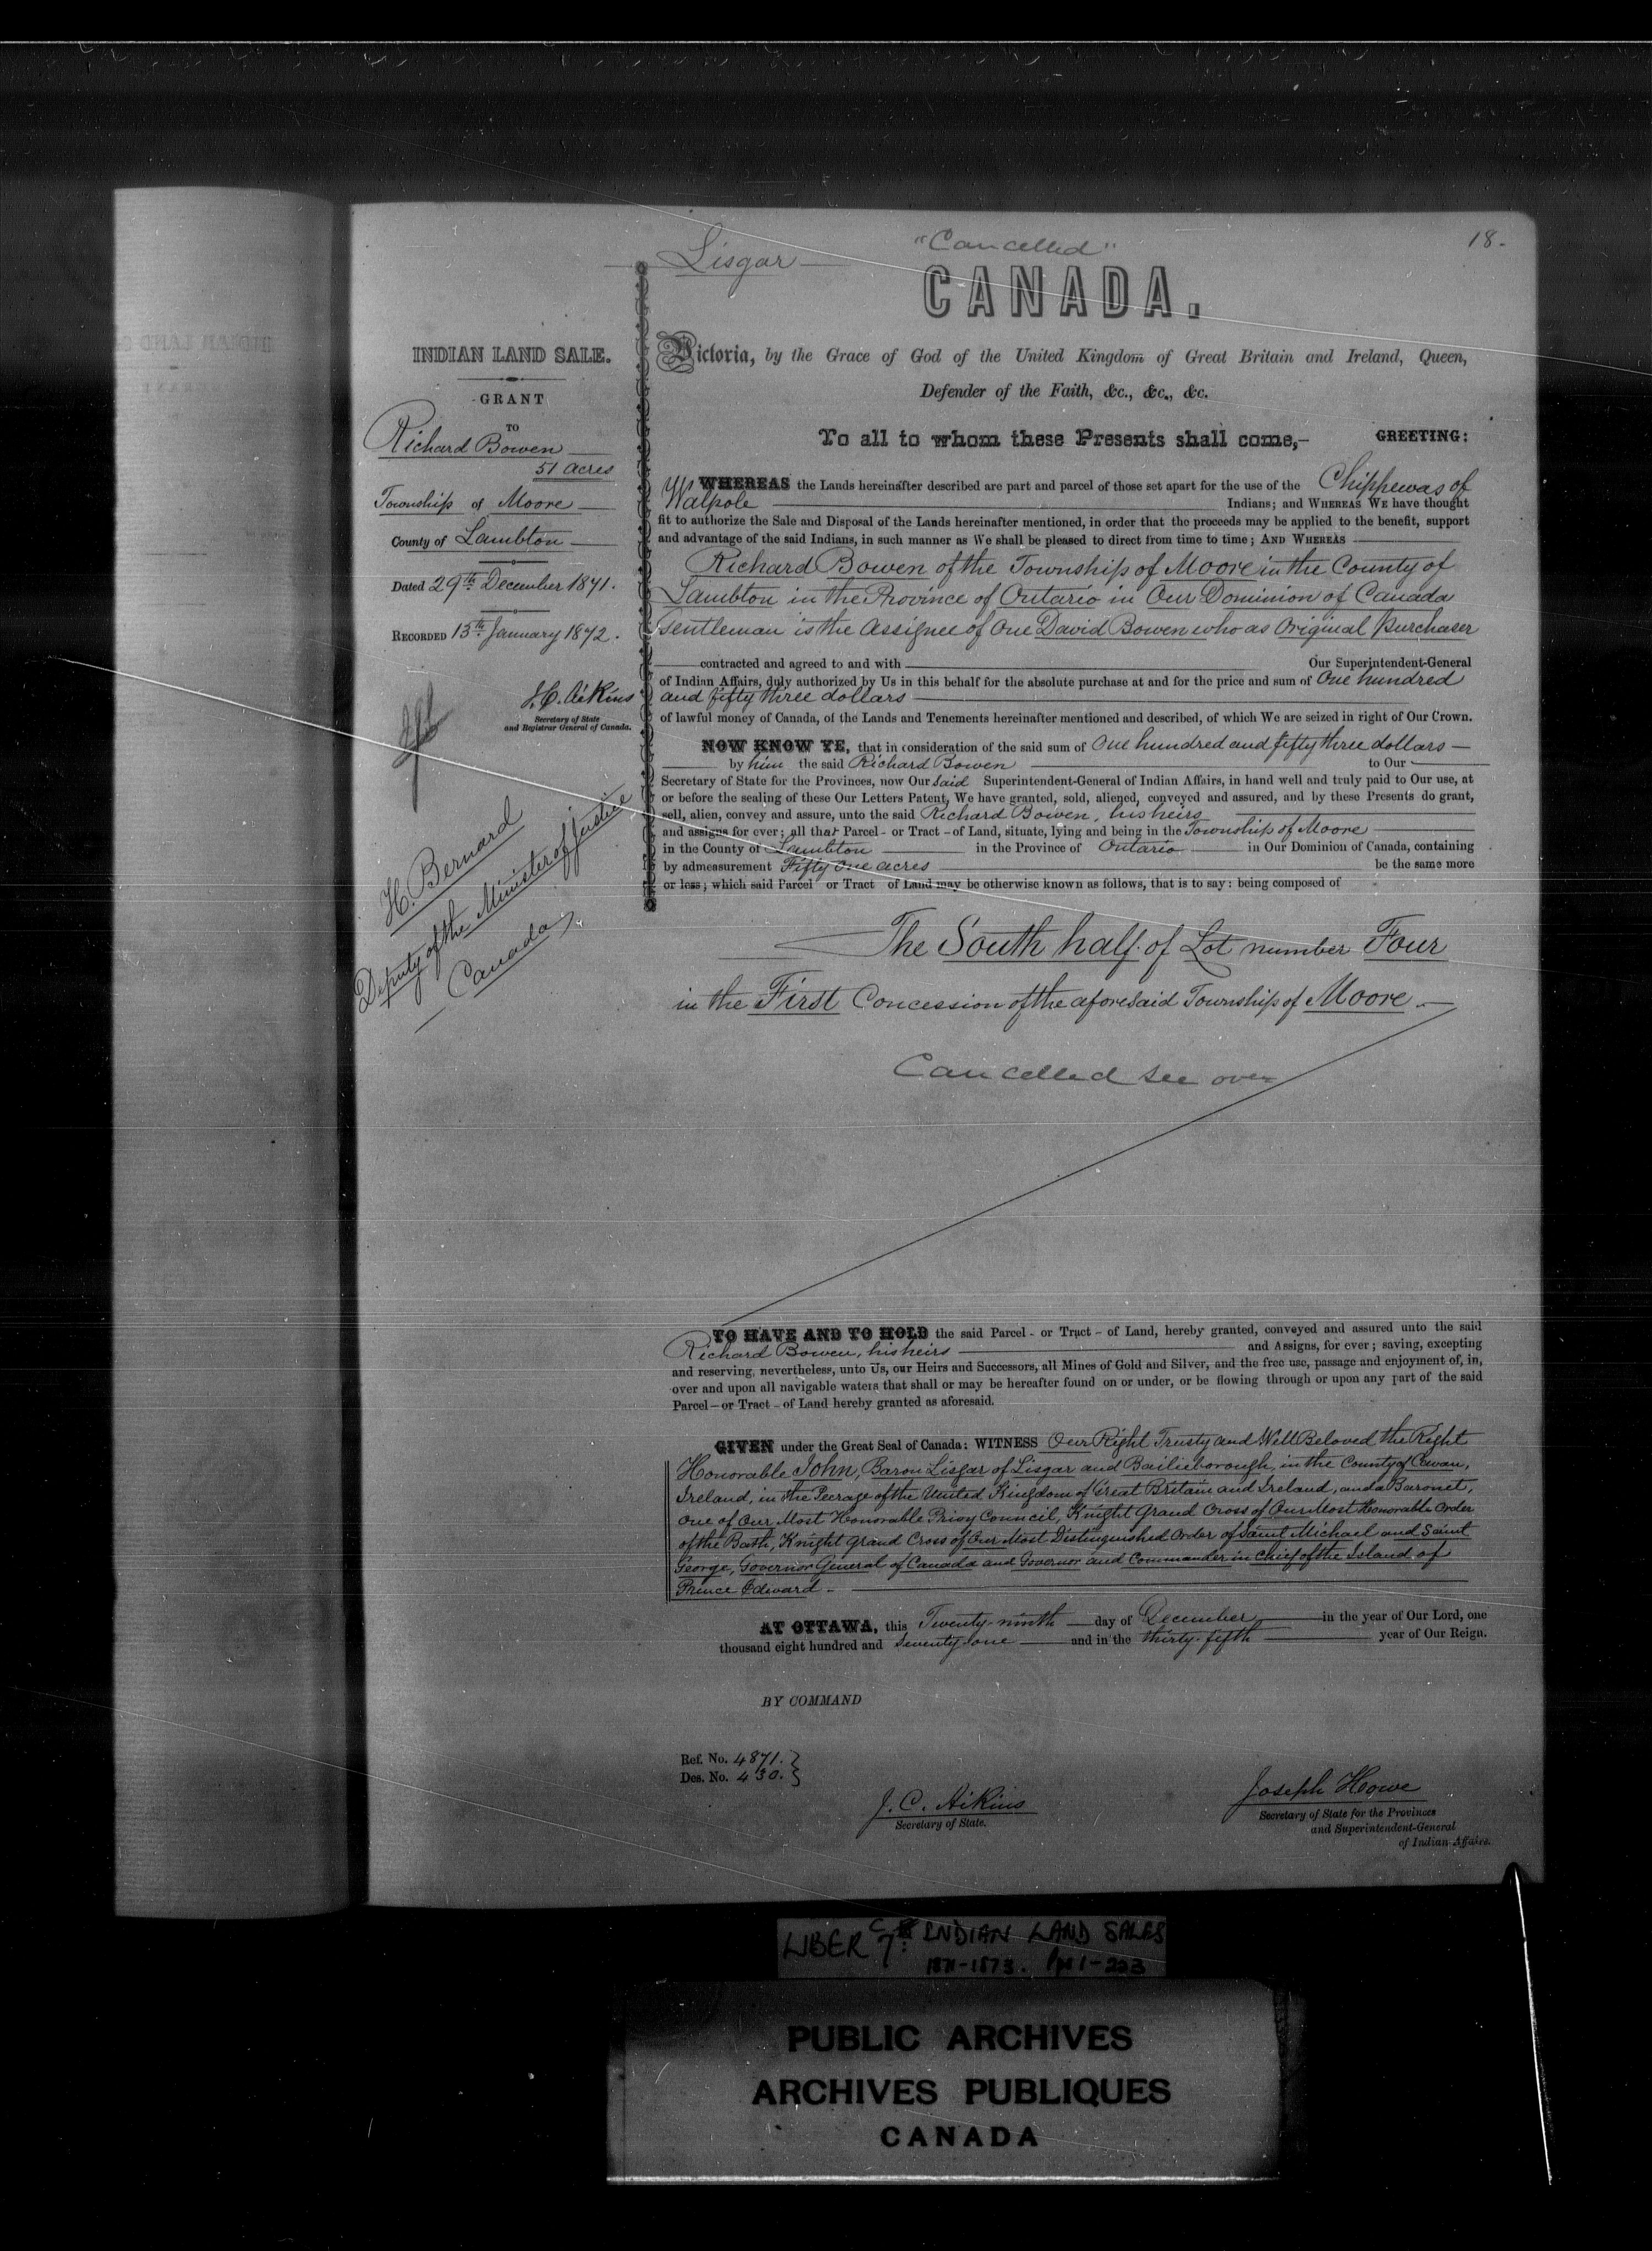 Lisgar
"Cancelled"
18.
CANADA.
INDIAN LAND SALE.
GRANT
TO
Richard Bowen
51 acres
Township of Moore
County of Lambton
Dated 29th December 1871.
RECORDED 13th January 1872.
J.C. Aikins
Secretary of State
and Registrar General of Canada.
H. Bernard
Deputy of the Minister of Justice
Canada
Victoria, by the Grace of God of the United Kingdom of Great Britain and Ireland, Queen,
Defender of the Faith, &c., &c., &c.
To all to whom these Presents shall come,— GREETING:
WHEREAS the Lands hereinafter described are part and parcel of those set apart for the use of the Chippewas of
Walpole Indians; and WHEREAS WE have thought
fit to authorize the Sale and Disposal of the Lands hereinafter mentioned, in order that the proceeds may be applied to the benefit, support
and advantage of the said Indians, in such manner as We shall be pleased to direct from time to time; AND WHEREAS
Richard Bowen of the Township of Moore in the County of
Lambton in the Province of Ontario in Our Dominion of Canada
Gentleman is the Assignee of One David Bowen who as Original Purchaser
contracted and agreed to and with Our Superintendent-General
of Indian Affairs, duly authorized by Us in this behalf for the absolute purchase at and for the price and sum of One hundred
and fifty three dollars
of lawful money of Canada, of the Lands and Tenements hereinafter mentioned and described, of which We are seized in right of Our Crown.
NOW KNOW YE, that in consideration of the said sum of One hundred and fifty three dollars —
by him the said Richard Bowen to Our
Secretary of State for the Provinces, now Our said Superintendent-General of Indian Affairs, in hand well and truly paid to Our use, at
or before the sealing of these Our Letters Patent, We have granted, sold, aliened, conveyed and assured, and by these Presents do grant,
sell, alien, convey and assure, unto the said Richard Bowen, his heirs
and assigns for ever; all that Parcel - or Tract - of Land, situate, lying and being in the Township of Moore
in the County of Lambton in the Province of Ontario in Our Dominion of Canada, containing
by admeasurement Fifty one acres be the same more
or less; which said Parcel or Tract of Land may be otherwise known as follows, that is to say: being composed of
The South half of Lot number Four
in the First Concession of the aforesaid Township of Moore.—
Cancelled see over
TO HAVE AND TO HOLD the said Parcel - or Tract - of Land, hereby granted, conveyed and assured unto the said
Richard Bowen, his heirs and Assigns, for ever; saving, excepting
and reserving, nevertheless, unto Us, our Heirs and Successors, all Mines of Gold and Silver, and the free use, passage and enjoyment of, in,
over and upon all navigable waters that shall or may be hereafter found on or under, or be flowing through or upon any part of the said
Parcel — or Tract - of Land hereby granted as aforesaid.
GIVEN under the Great Seal of Canada: WITNESS Our Right Trusty and Well Beloved the Right
Honorable John, Baron Lisgar of Lisgar and Bailieborough, in the County of Cavan,
Ireland, in the Peerage of the United Kingdom of Great Britain and Ireland, and a Baronet,
One of Our Most Honorable Privy Council, Knight Grand Cross of Our Most Honorable Order
of the Bath, Knight Grand Cross of Our Most Distinguished Order of Saint Michael and Saint
George, Governor General of Canada and Governor and Commander in Chief of the Island of
Prince Edward.—
AT OTTAWA, this Twenty-ninth day of December in the year of Our Lord, one
thousand eight hundred and seventy-one and in the thirty-fifth year of Our Reign.
BY COMMAND
Ref. No. 4871.
Des. No. 430.
J. C. Aikins
Secretary of State.
Joseph Howe
Secretary of State for the Provinces
and Superintendent-General
of Indian Affairs.
LIBER C7: INDIAN LAND SALES
1871-1873. Pps 1-203
PUBLIC ARCHIVES
ARCHIVES PUBLIQUES
CANADA